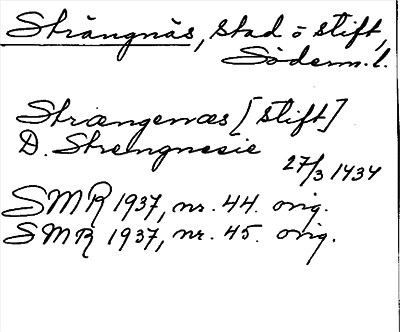 Strängnäs, stad o stift,
Söderm. l.
Strængenæs [stift]
D. Strengnesie
27/3 1434
SMR 1937, nr. 44. orig.
SMR 1937, nr. 45. orig.